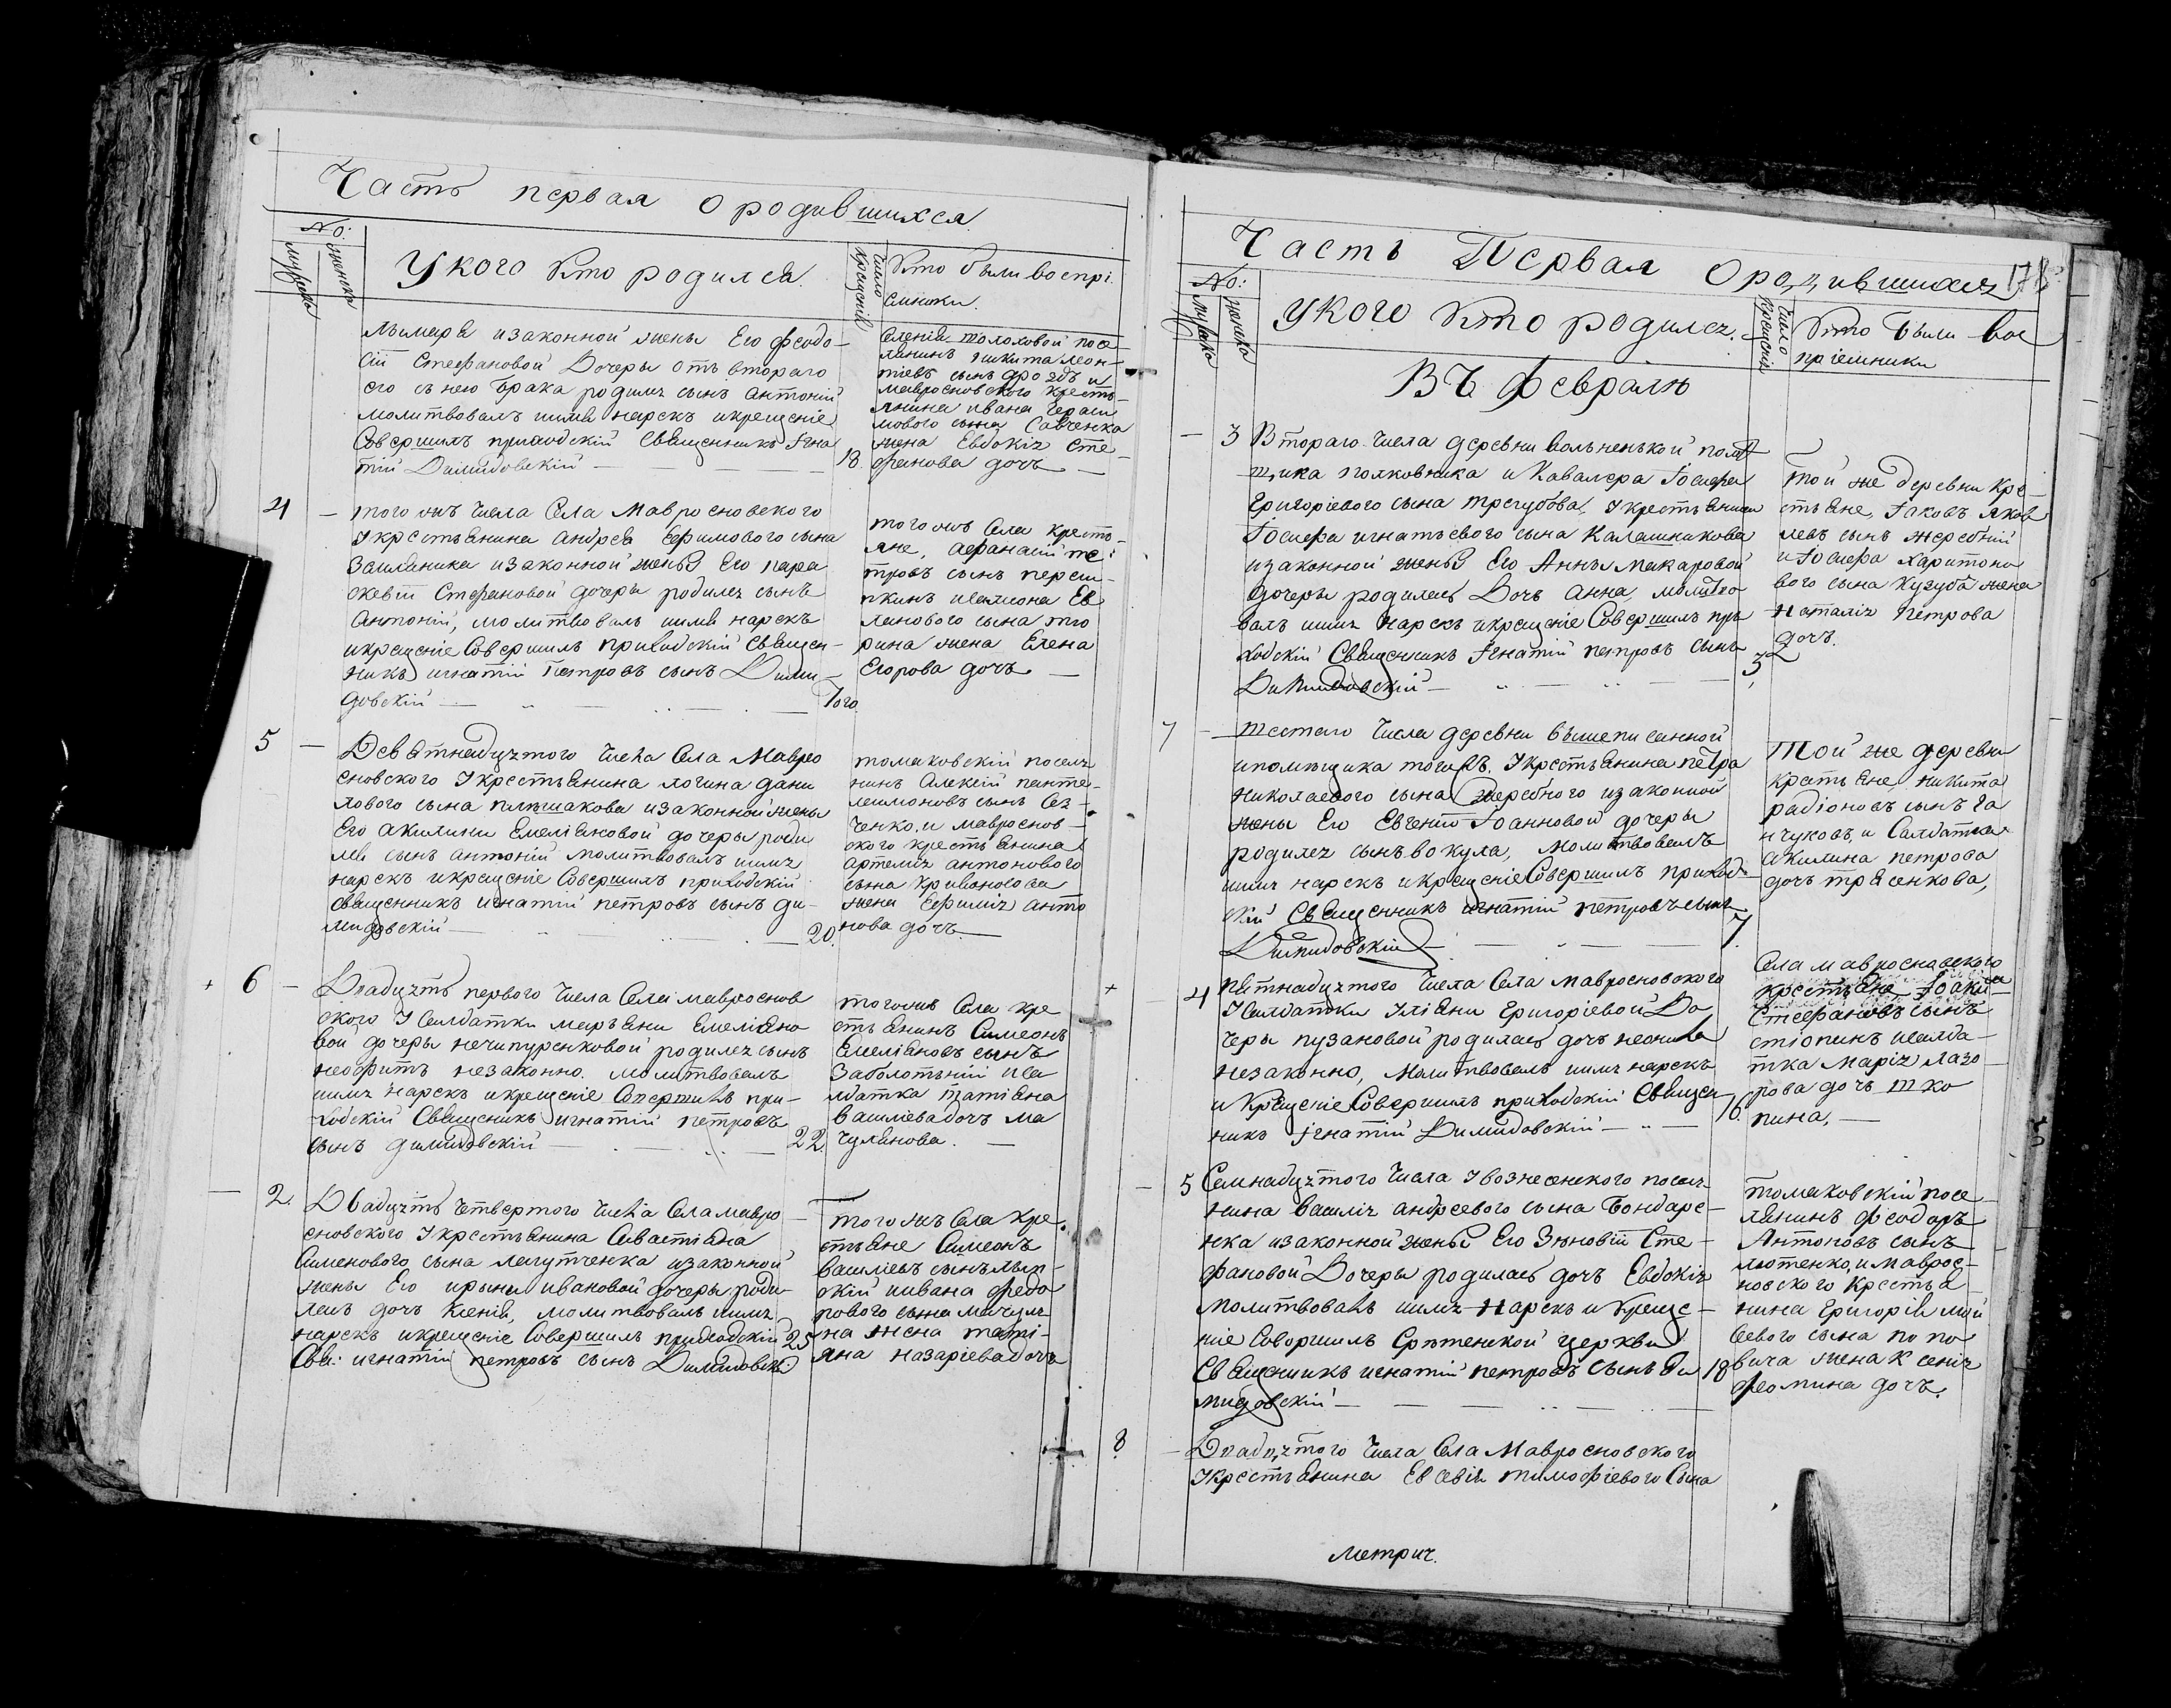 Часть первая о родившихся
No:
мужеска
женска
У кого кто родился.
Число крещенія
Кто были воспрі
емники.
изаконной жены Его феодо-
сіи Стефановой Дочеры отъ втораго
его снею брака родилъ сынъ антоній
молитвовалъ имя нарекъ икрещеніе
Совершилъ приходскій Священникъ Игна
тій Димидовскій
18.
посе-
лянинъ никита леон-
тіевъ сынъ дроздъ и
мавросновского кресть-
янина ивана гераси
мового сына Савченка
жена Евдокія Сте-
фанова дочь
4
того жъ числа Села Мавросновского
Укрестьянина андрея Ефимового сына
изаконной жены Его пара
скевіи Стефановой дочеры родился сынъ
Антоній, молитвовалъ имя нарекъ
икрещеніе Совершилъ Приходскій Священ-
никъ игнатій Петровъ сынъ Дими-
довскій
Того
того жъ Села кресть-
яне, афанасій пе-
тровъ сынъ
Ев
сына
жена Елена
Егорова дочь
5
Девятнадцятого числа Села Мавро
сновского Укрестьянина логина дани
лового сына изаконной жены
Его акилины Емеліяновой дочеры роди
ля сынъ антоній молитвовалъ имя
нарекъ икрещеніе Совершилъ приходскій
священникъ игнатій петровъ сынъ ди-
мидовскій
20.
томаковскій поселя
нинъ Алексій панте-
леимоновъ сынъ
ченко, и мавроснов-
ского крестьянина
артемія антонового
сына Кривоногова
жена Ефимія анто
нова дочь
6
Двадцять первого числа Села мавроснов
ского У Салдатки марьяни Емеліяно
вой дочеры нечипуренковой родился сынъ
неофитъ незаконно. молитвовалъ
имя нарекъ икрещеніе Совершилъ при-
ходскій Священникъ игнатій петровъ
сынъ димидовскій
22.
тогожъ Села кре
стьянинъ Симеонъ
Емеліяновъ сынъ
Заболотній иса
лдатка татіяна
васіліева дочь ма
чулянова.
2.
Двадцять четвертого числа Села мавро
сновского Укрестьянина Савастіяна
Сименового сына изаконной
жены Его ирыны ивановой дочеры роди
лась дочь Ксенія, молитвовалъ имя
нарекъ икрещеніе Совершилъ приходскій
Свя: игнатій петровъ сынъ Димидовскі:
25
того жъ Села кре-
стьяне Симеонъ
васіліевъ сынъ
скій иивана федо
рового сына мачуля-
на жена тати-
яна назаріева дочь
Часть Первая О родившихся
178
No:
мужеска
женска
У кого кто родился.
Число крещенія
Кто были вос
пріемники
Въ февралѣ
3
Втораго числа деревни вольненькой помѣ
щика полковника и Кавалера Іосифа
Григоріевого сына трегубова, Укрестьянина
Іосифа игнатьевого сына Калашникова
изаконной жены Его Анны Макаровой
дочеры родилась Дочь анна, молитво
валъ имя нарекъ икрещеніе Совершилъ при
ходскій Священникъ Игнатій петровъ сынъ
Димидовскій
3
той же деревни Кре-
стьяне, Іаковъ яков
левъ сынъ жеребній
и Іосифа Харитоно
вого сына Кугуба жена
наталія петрова
дочь.
7
шестаго числа деревни вышеписанной
ипомещика того жъ, Укрестьянина петра
Николаевого сына жеребного изаконной
жены Его Евгеніи Іоанновой дочеры
родился сынъ вокула, молитвовалъ
имя нарекъ икрещеніе Совершилъ приход-
скій Священникъ игнатій петровъ сынъ
Димидовскій
7
Той же деревни
крестьяне, никита
радіоновъ сынъ га
нчуковъ, и Салдатка
акилина петрова
дочь трясенкова,
4
Пятнадцятого числа Села мавросновского
У Салдатки Уліяни Григоріевой До
черы пузановой родилась дочь неонила
незаконно, молитвовалъ имя нарекъ
и крещеніе Совершилъ приходскій Священ
никъ Игнатій Димидовскій
16.
Села мавросновского
крестьяне Іоаки
Стефановъ сынъ
исалда-
тка Марія лазо
рова дочь шко
пина,
5
Семнадцятого числа Увознесенского поселя-
нина василія андреевого сына Бондаре-
нка изаконной жены Его Зѣновіи Сте-
фановой Дочеры родилась дочь Евдокія
молитвовалъ имя нарекъ и креще-
ніе Совершилъ Срѣтенской церкви
Священникъ игнатій петровъ Сынъ Ди
мидовскій
18
томаковскій посе-
лянинъ феодоръ
Антоновъ сынъ
лютенко, и маврос-
новского крестья-
нина Григорія мой
сеевого сына попо
вича жена Ксенія
фомина дочь.
8
Двадцятого числа Села Мавросновского
Укрестьянина Евсевія тимофіевого Сына
метрич.